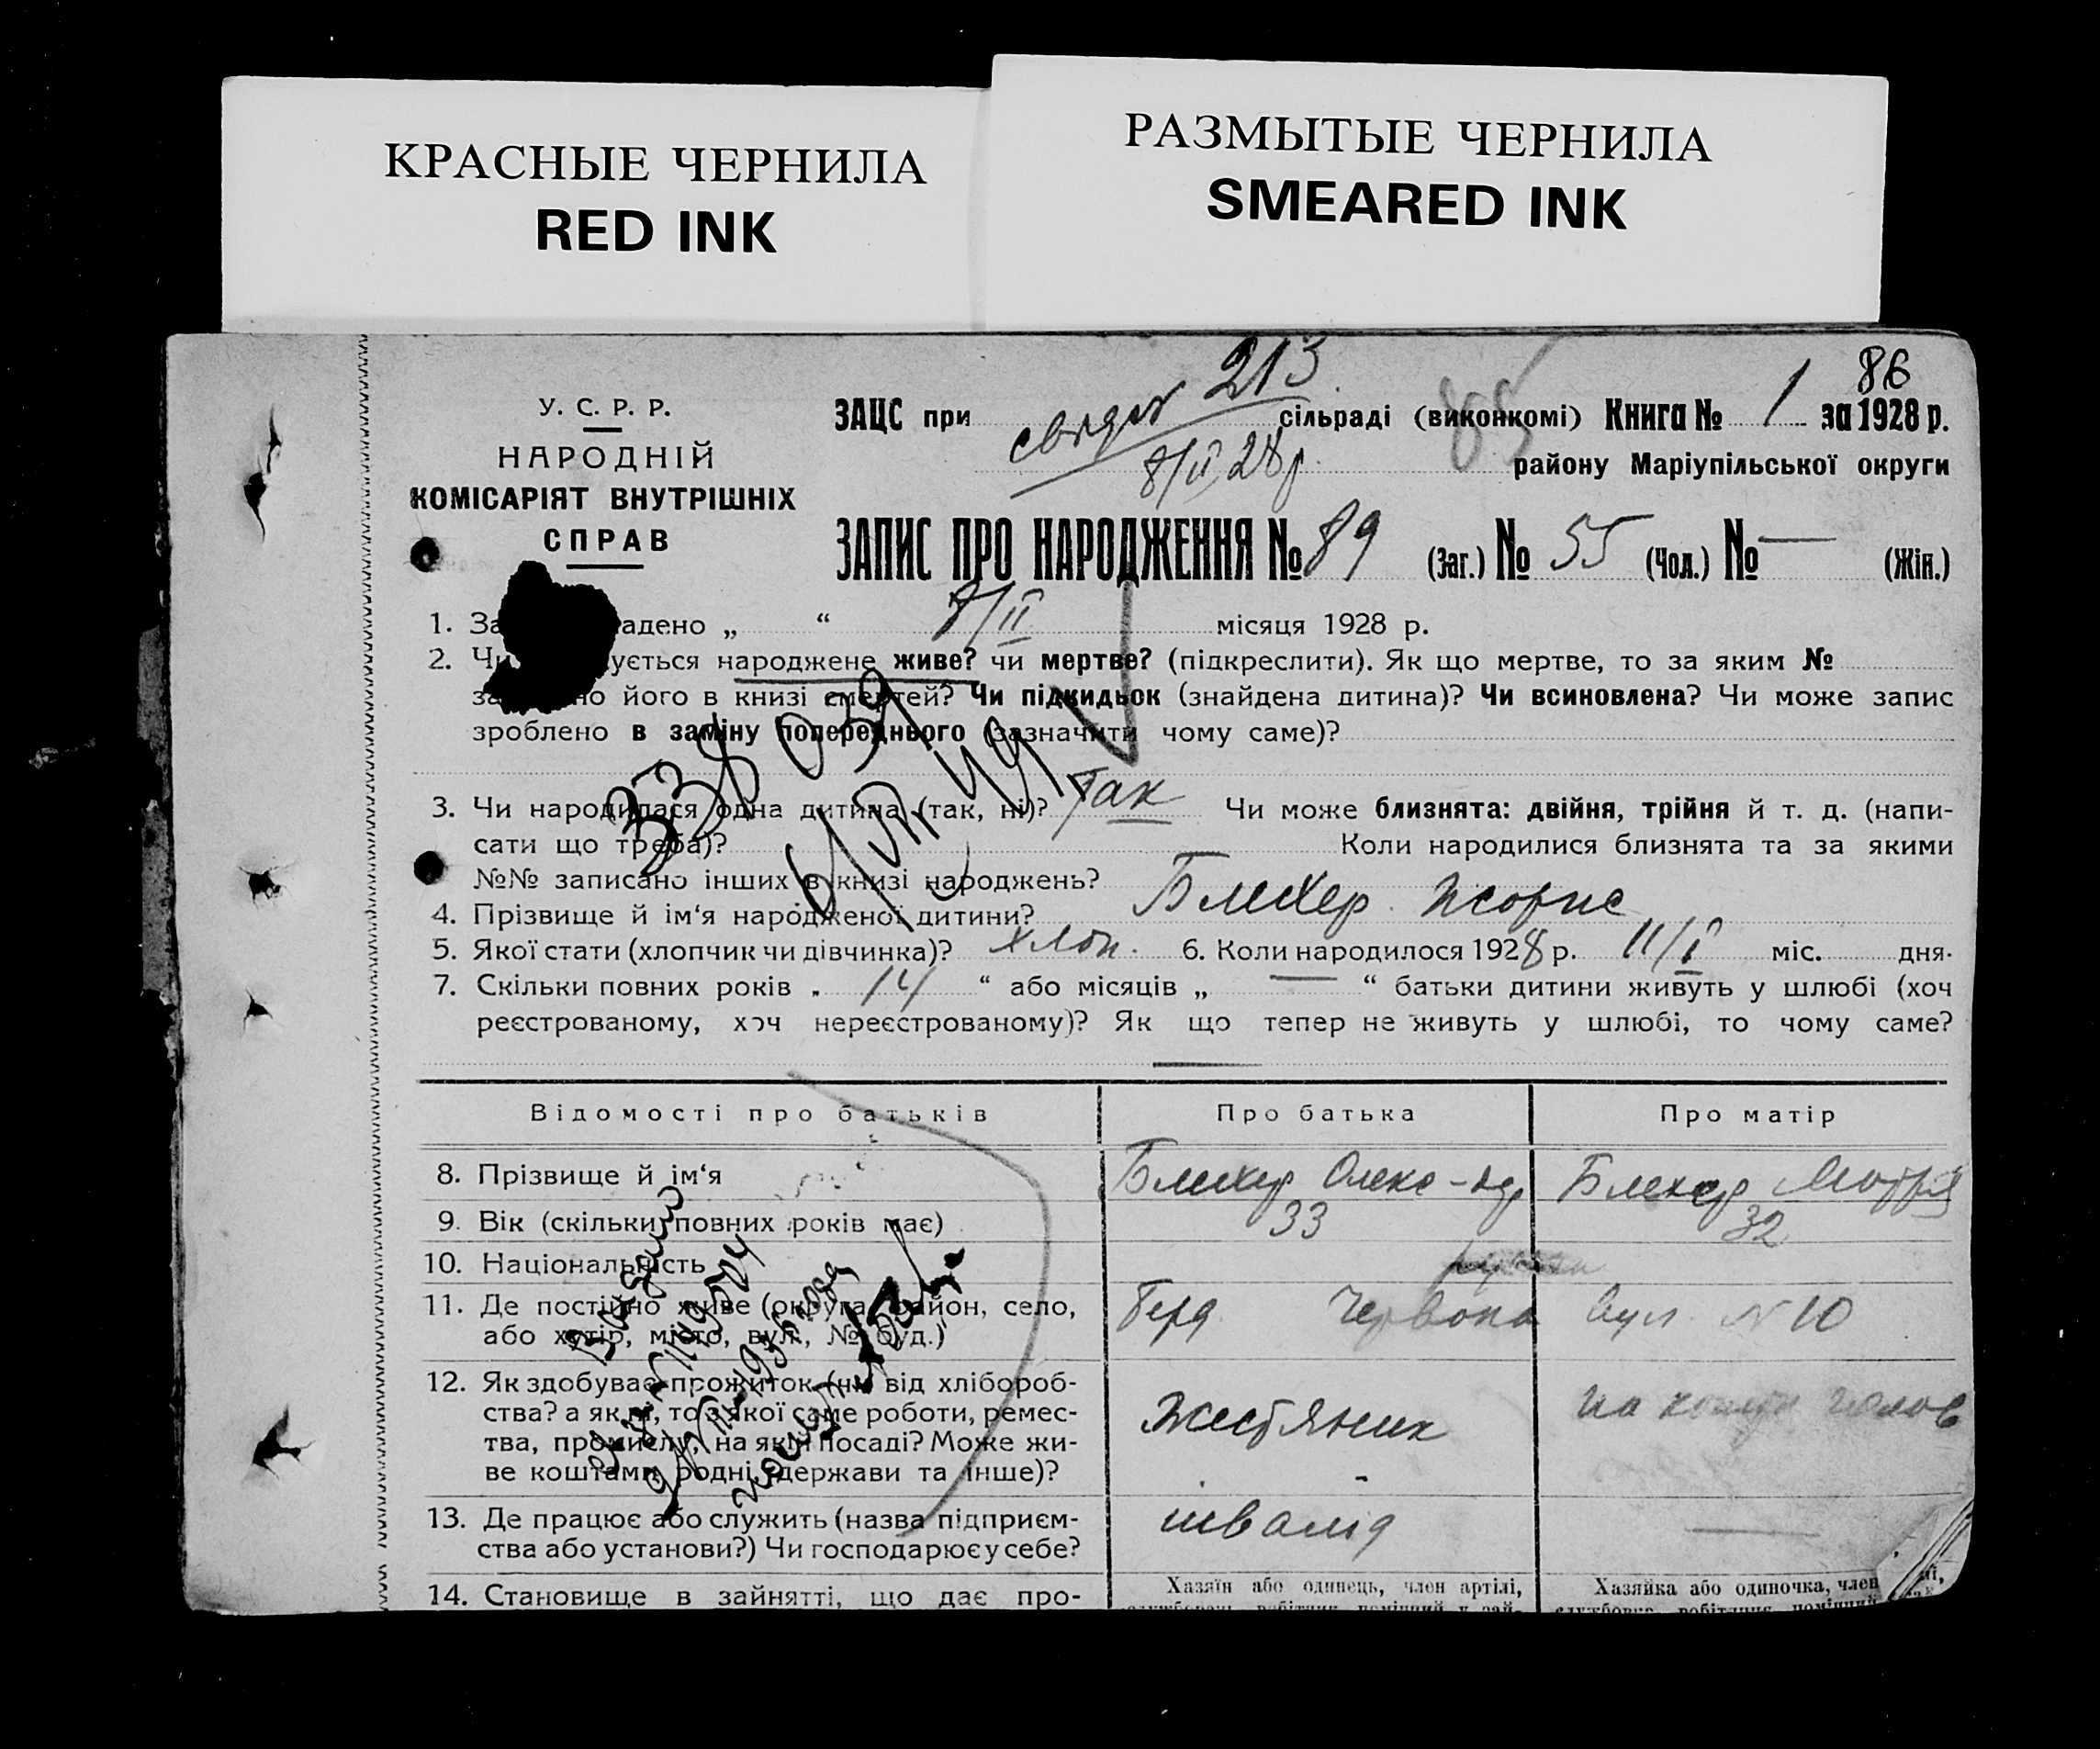 КРАСНЫЕ ЧЕРНИЛА
RED INK
РАЗМЫТЫЕ ЧЕРНИЛА
SMEARED INK
86
213
85
У. С. Р. Р.
НАРОДНІЙ
КОМІСАРІЯТ ВНУТРІШНІХ
СПРАВ
ЗАЦС при сільраді (виконкомі) Книга № 1 за 1928 р.
8/II 28 р. району Маріупільської округи
ЗАПИС ПРО НАРОДЖЕННЯ № 89 (Заг.) № 55 (Чол.) № — (Жін.)
1. За адено „ “ 8/II місяця 1928 р.
2. Чи ується народжене живе? чи мертве? (підкреслити). Як що мертве, то за яким №
за но його в книзі смертей? Чи підкидьок (знайдена дитина)? Чи всиновлена? Чи може запис
зроблено в заміну попереднього (зазначити чому саме)?
3. Чи народилася одна дитина (так, ні)? Так Чи може близнята: двійня, трійня й т. д. (напи-
сати що треба)? Коли народилися близнята та за якими
№№ записано інших в книзі народжень?
4. Прізвище й ім‘я народженої дитини? Блехер Жорис
5. Якої стати (хлопчик чи дівчинка)? хлоп. 6. Коли народилося 1928 р. 11/I міс. дня.
7. Скільки повних років „ 14 “ або місяців „ — “ батьки дитини живуть у шлюбі (хоч
реєстрованому, хоч нереєстрованому)? Як що тепер не живуть у шлюбі, то чому саме?
Відомості про батьків Про батька Про матір
8. Прізвище й ім‘я Блехер Олекс-др Блехер Мотря
9. Вік (скільки повних років має) 33 32
10. Національність
11. Де постійно живе (округа, район, село,
або хутір, місто, вул., № буд.) Берд. Червона вул. № 10
12. Як здобуває прожиток (чи від хлібороб-
ства? а як ні, то з якої саме роботи, ремес-
тва, промислу, на якій посаді? Може жи-
ве коштами родні, держави та інше)?
Жестяник
13. Де працює або служить (назва підприєм-
ства або установи?) Чи господарює у себе?
інвалід —
14. Становище в зайнятті, що дає про-
Хазяїн або одинець, член артілі,
Хазяйка або одиночка, член